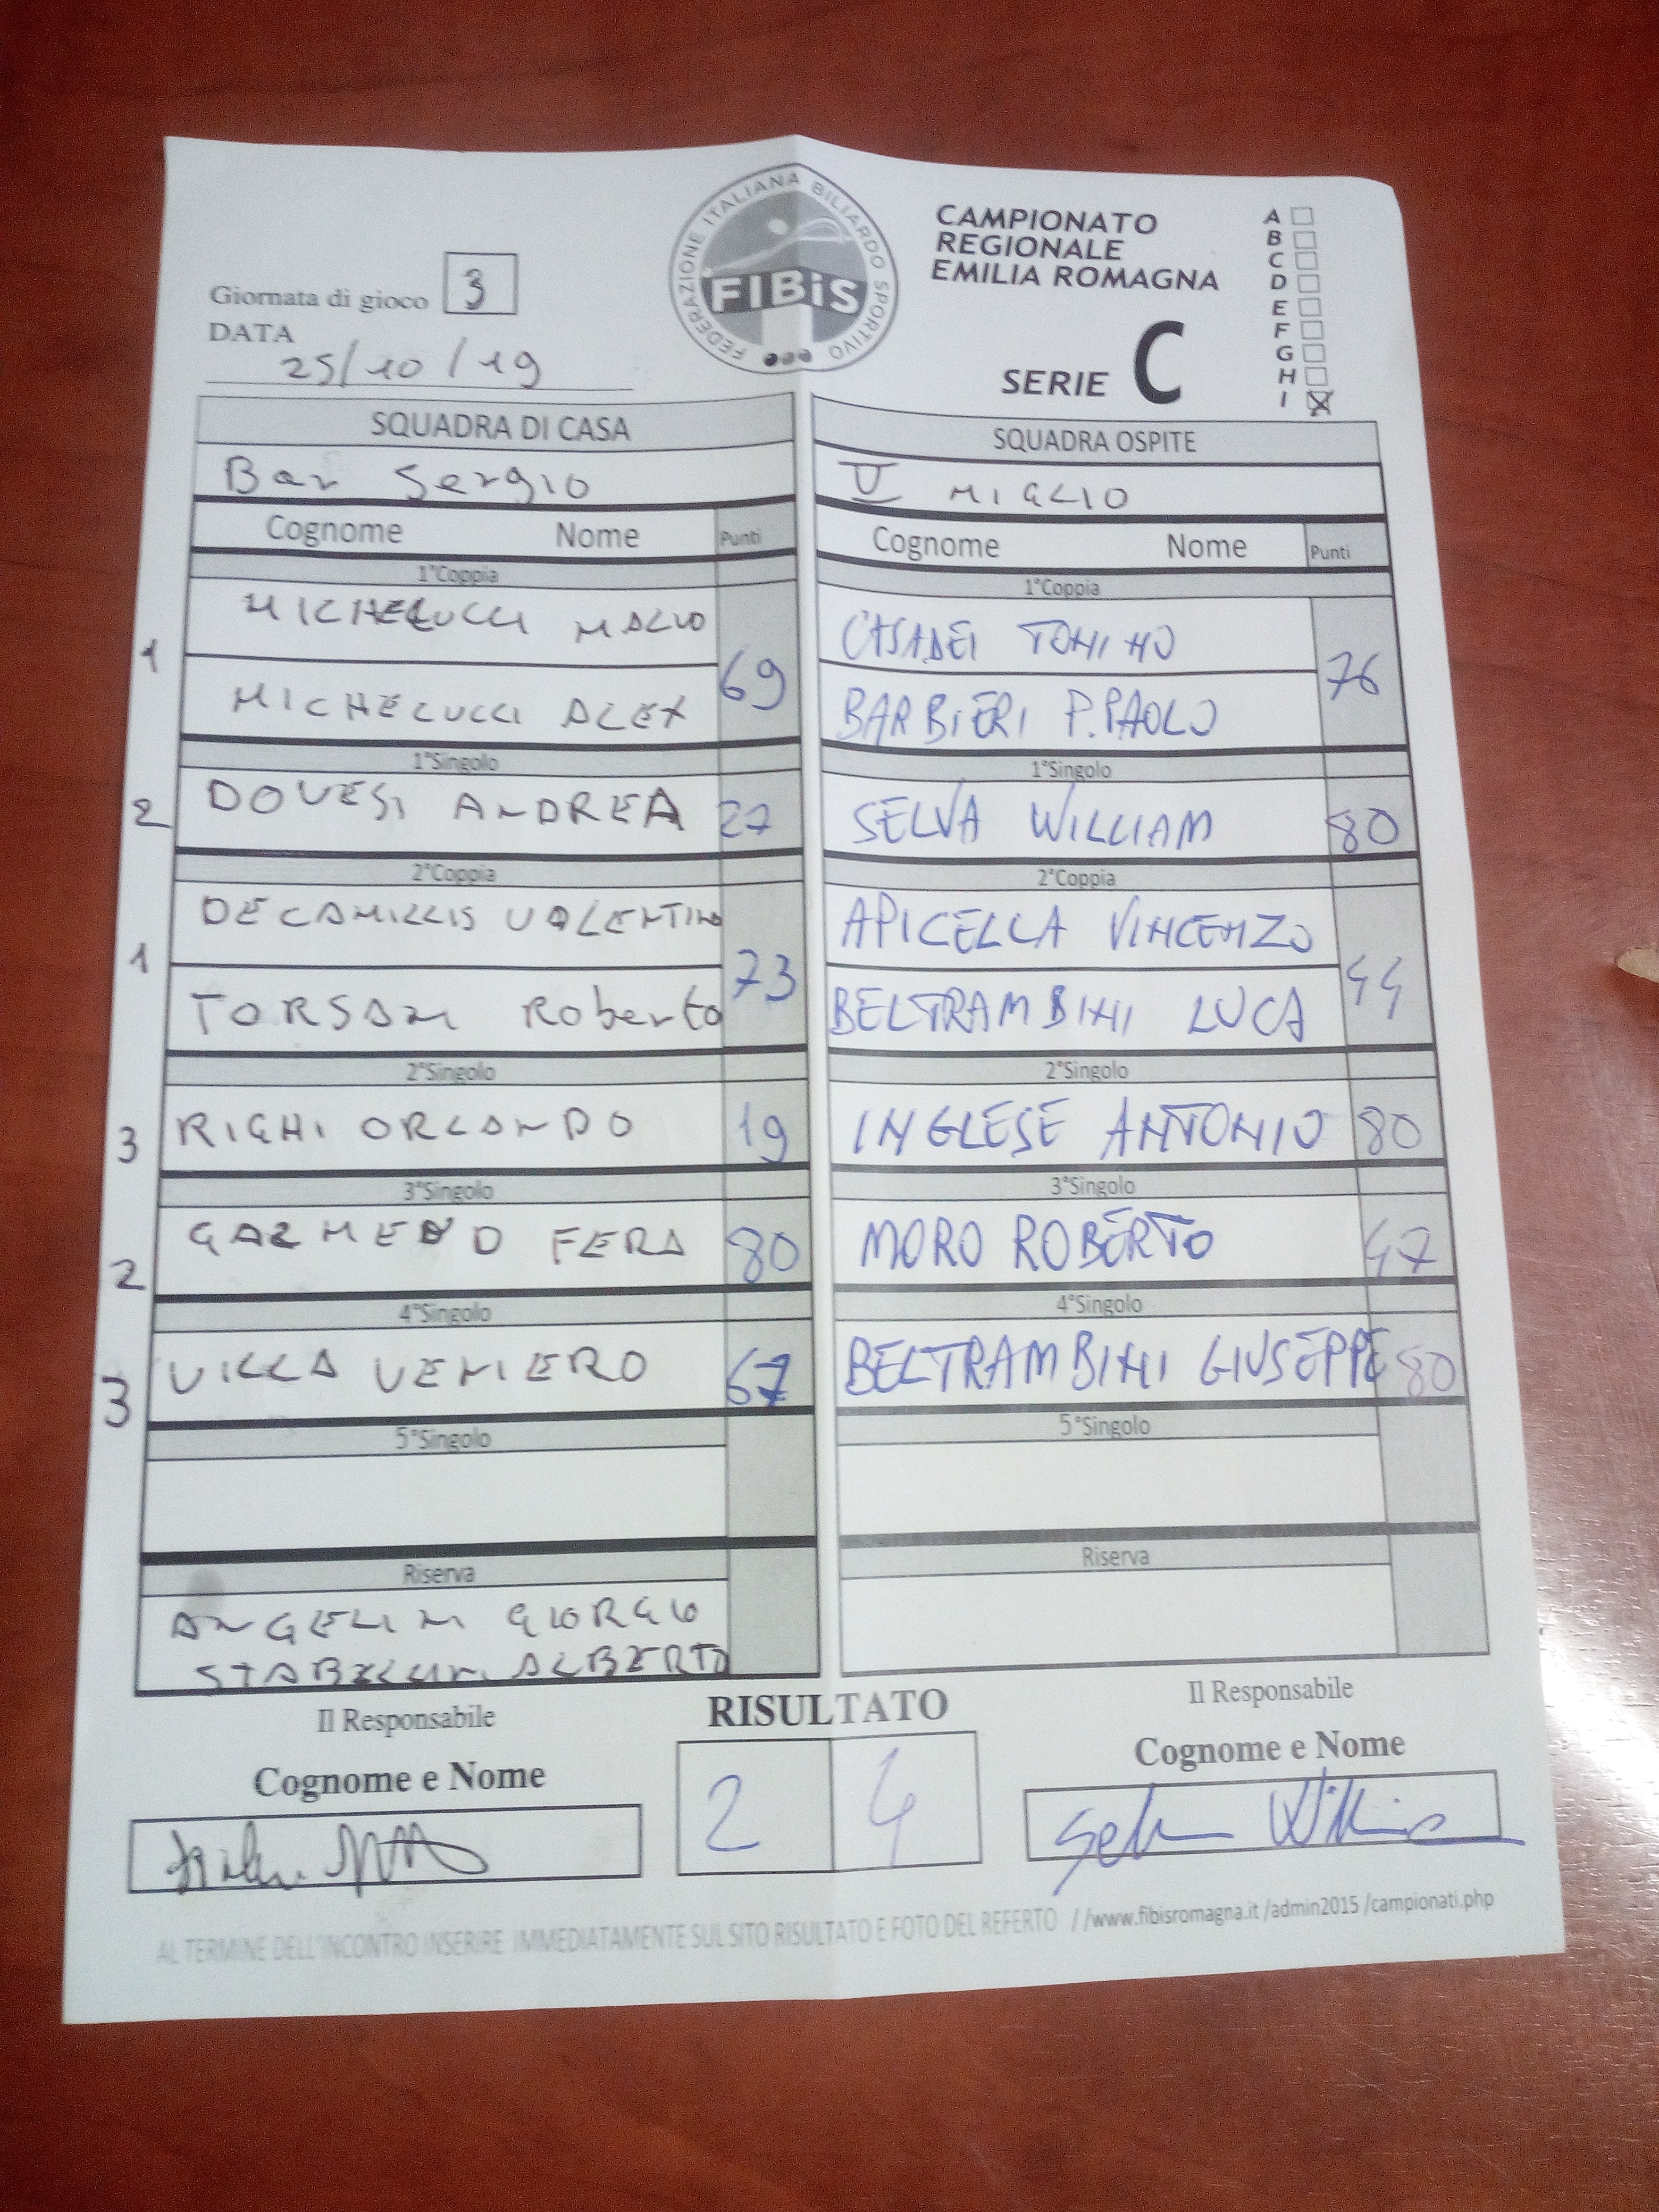 FEDERAZIONE ITALIANA BILIARDO SPORTIVO
FIBiS
FIBIS
CAMPIONATO
REGIONALE
EMILIA ROMAGNA
SERIE C
A
B
C
D
E
F
G
H
I X
Giornata di gioco 3
DATA
25/10/19
SQUADRA DI CASA
Bar Sergio
Cognome Nome Punti
1°Coppia
1 MICHELUCCI 69
MICHELUCCI ALEX
1°Singolo
2 DOVESI ANDREA 27
2°Coppia
DECAMILLIS VALENTINO
1 73
Roberto
2°Singolo
3 RIGHI ORLANDO 19
3°Singolo
2 FERA 80
4°Singolo
3 VILLA VENIERO 67
5°Singolo
Riserva
ANGELINI GIORGIO
ALBERTO
SQUADRA OSPITE
V MIGLIO
Cognome Nome Punti
1°Coppia
CASADEI TONINO 76
BARBIERI P.PAOLO
1°Singolo
SELVA WILLIAM 80
2°Coppia
APICELLA VINCENZO 44
BELTRAMBINI LUCA
2°Singolo
INGLESE ANTONIO 80
3°Singolo
MORO ROBERTO 47
4°Singolo
BELTRAMBINI GIUSEPPE 80
5°Singolo
Riserva
Il Responsabile
Cognome e Nome
RISULTATO
2 4
Il Responsabile
Cognome e Nome
Selva William
AL TERMINE DELL'INCONTRO INSERIRE IMMEDIATAMENTE SUL SITO RISULTATO E FOTO DEL REFERTO //www.fibisromagna.it /admin2015 /campionati.php